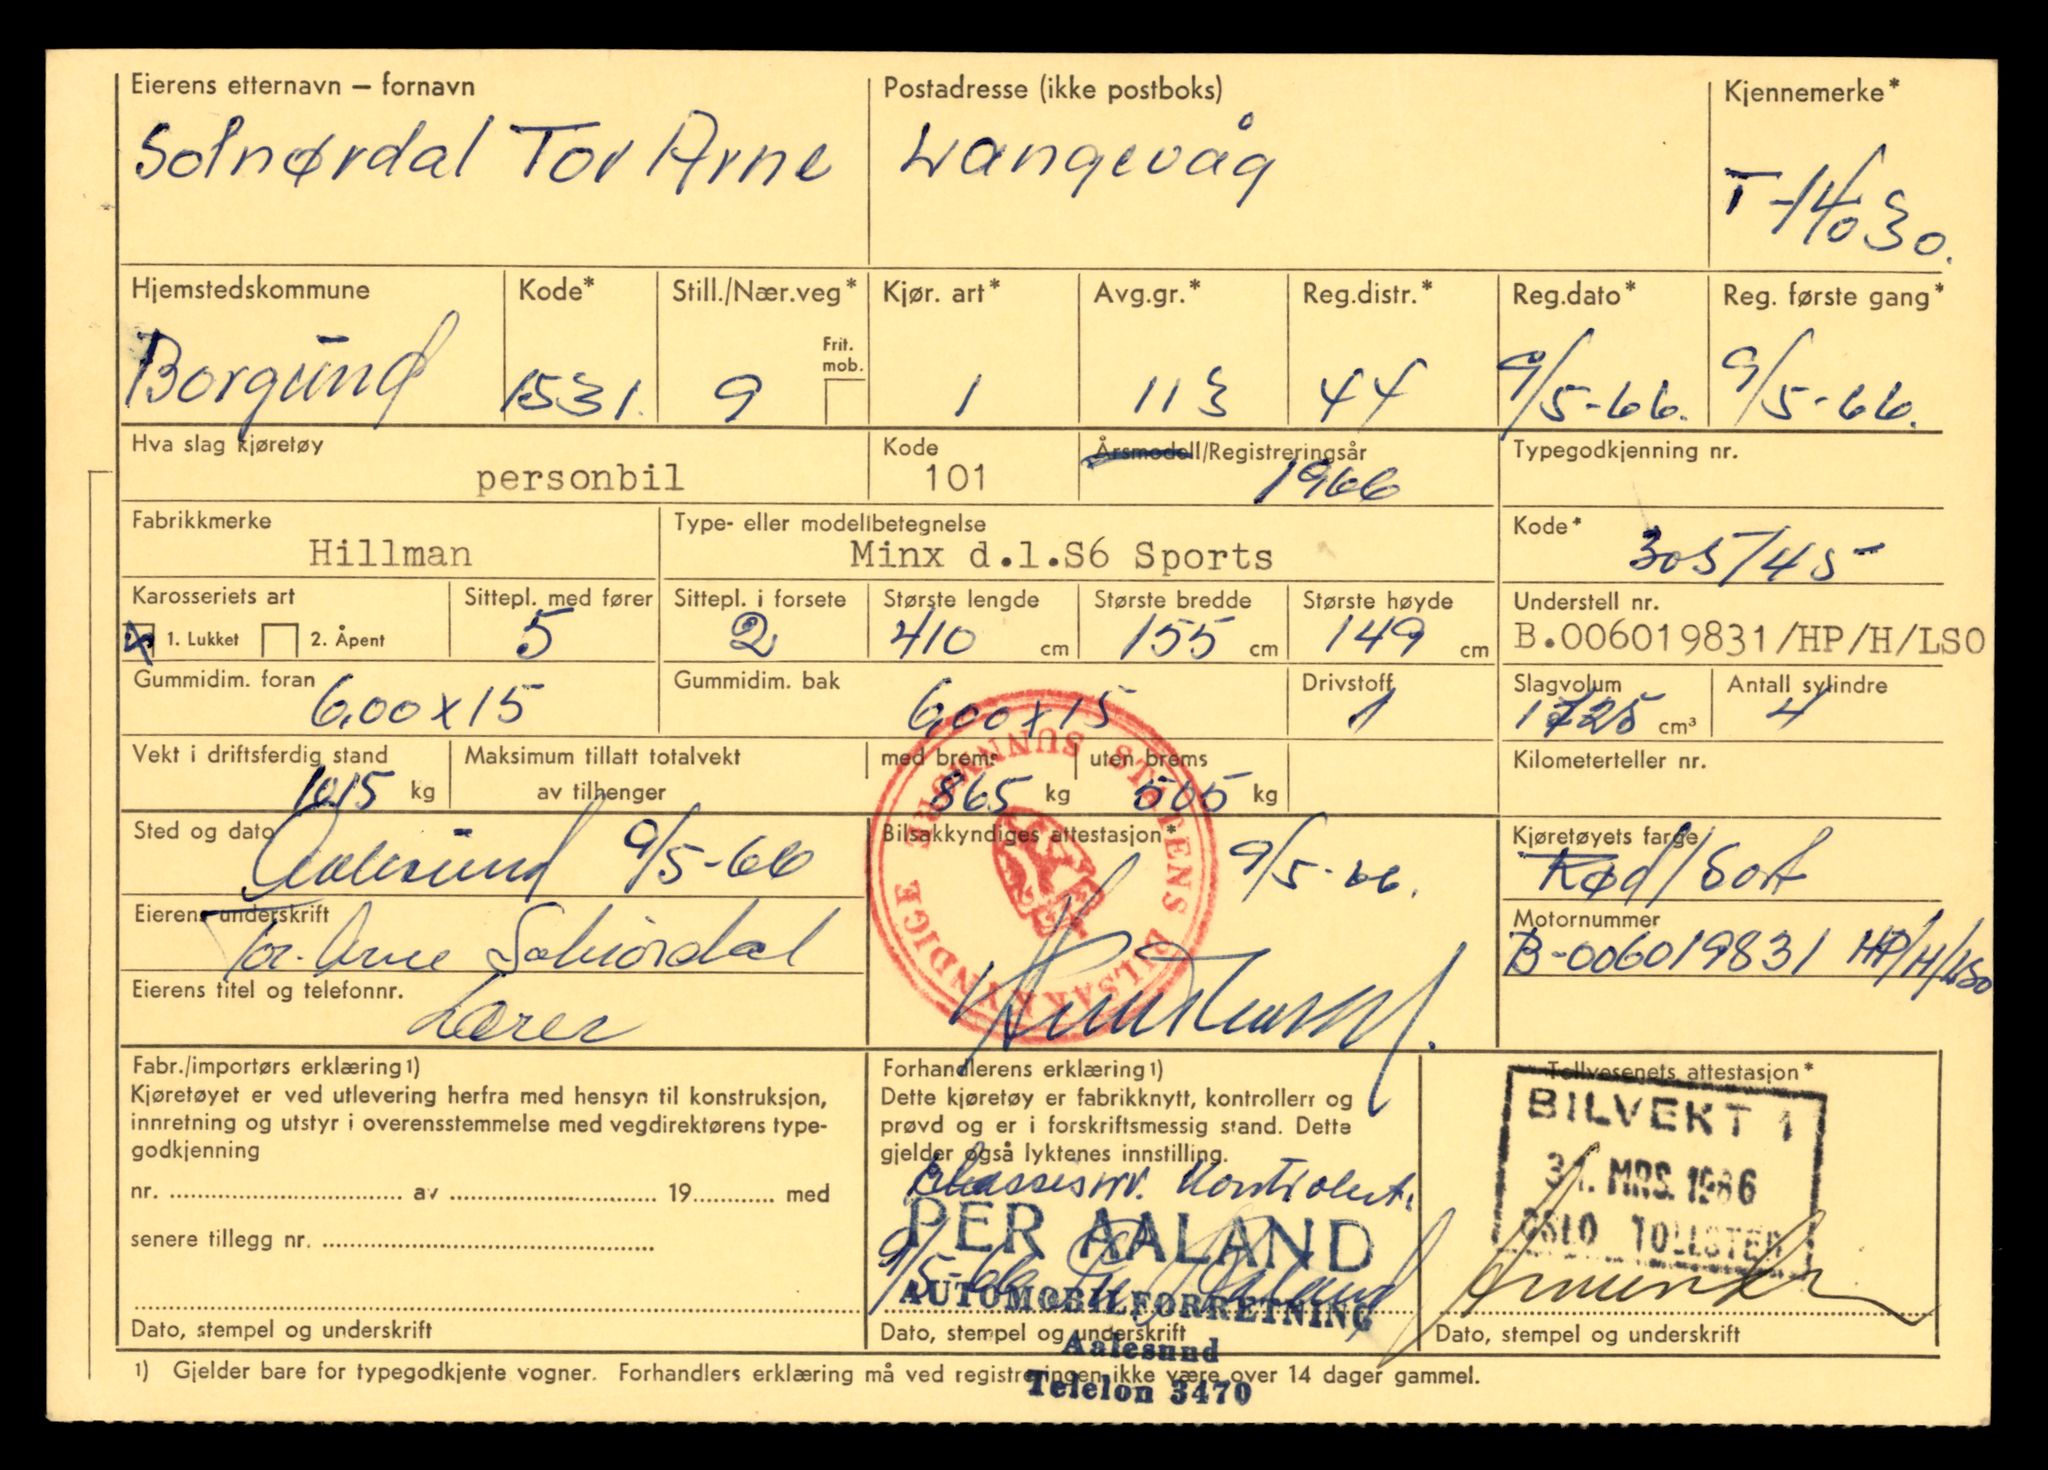 Eierens etternavn — fornavn
Solnørdal Tor Arne
Postadresse (ikke postboks)
Langevåg
Kjennemerke*
T-14030.
Hjemstedskommune
Borgund
Kode*
1531.
Still./Nær.veg*
9
Frit. mob.
Kjør. art*
1
Avg.gr.*
113
Reg.distr.*
44
Reg.dato*
9/5-66.
Reg. første gang*
9/5-66.
Hva slag kjøretøy
personbil
Kode
101
Årsmodell/Registreringsår
1966
Typegodkjenning nr.
Fabrikkmerke
Hillman
Type- eller modellbetegnelse
Minx d.l.S6 Sports
Kode*
305/45
Karosseriets art
x 1. Lukket 2. Åpent
Sittepl. med fører
5
Sittepl. i forsete
2
Største lengde
410 cm
Største bredde
155 cm
Største høyde
149 cm
Understell nr.
B.006019831/HP/H/LSO
Gummidim. foran
6,00 x 15
Gummidim. bak
6,00 x 15
Drivstoff
1
Slagvolum
1725 cm³
Antall sylindre
4
Vekt i driftsferdig stand
1015 kg
Maksimum tillatt totalvekt
av tilhenger
med brems
865 kg
uten brems
505 kg
Kilometerteller nr.
Sted og dato
Aalesund 9/5-66
Bilsakkyndiges attestasjon*
9/5-66.
STATENS BILSAKKYNDIGE SUNNMØRE
Kjøretøyets farge
Rød/Sort
Eierens underskrift
Tor-Arne Solnørdal
Motornummer
B-006019831 HP/H/LSO
Eierens titel og telefonnr.
Lærer
Fabr./importørs erklæring1)
Kjøretøyet er ved utlevering herfra med hensyn til konstruksjon,
innretning og utstyr i overensstemmelse med vegdirektørens type-
godkjenning
nr. .......... av .......... 19.......... med
senere tillegg nr. ..........
Dato, stempel og underskrift
Forhandlerens erklæring1)
Dette kjøretøy er fabrikknytt, kontrollert og
prøvd og er i forskriftsmessig stand. Dette
gjelder også lyktenes innstilling.
Chassesnr. Kontrolert.
PER AALAND
9/5-66 Per Aaland
AUTOMOBILFORRETNING
Dato, stempel og underskrift
Aalesund
Telefon 3470
Tollvesenets attestasjon*
BILVEKT 1
31. MRS. 1966
OSLO TOLLSTED
Dato, stempel og underskrift
1) Gjelder bare for typegodkjente vogner. Forhandlers erklæring må ved registreringen ikke være over 14 dager gammel.